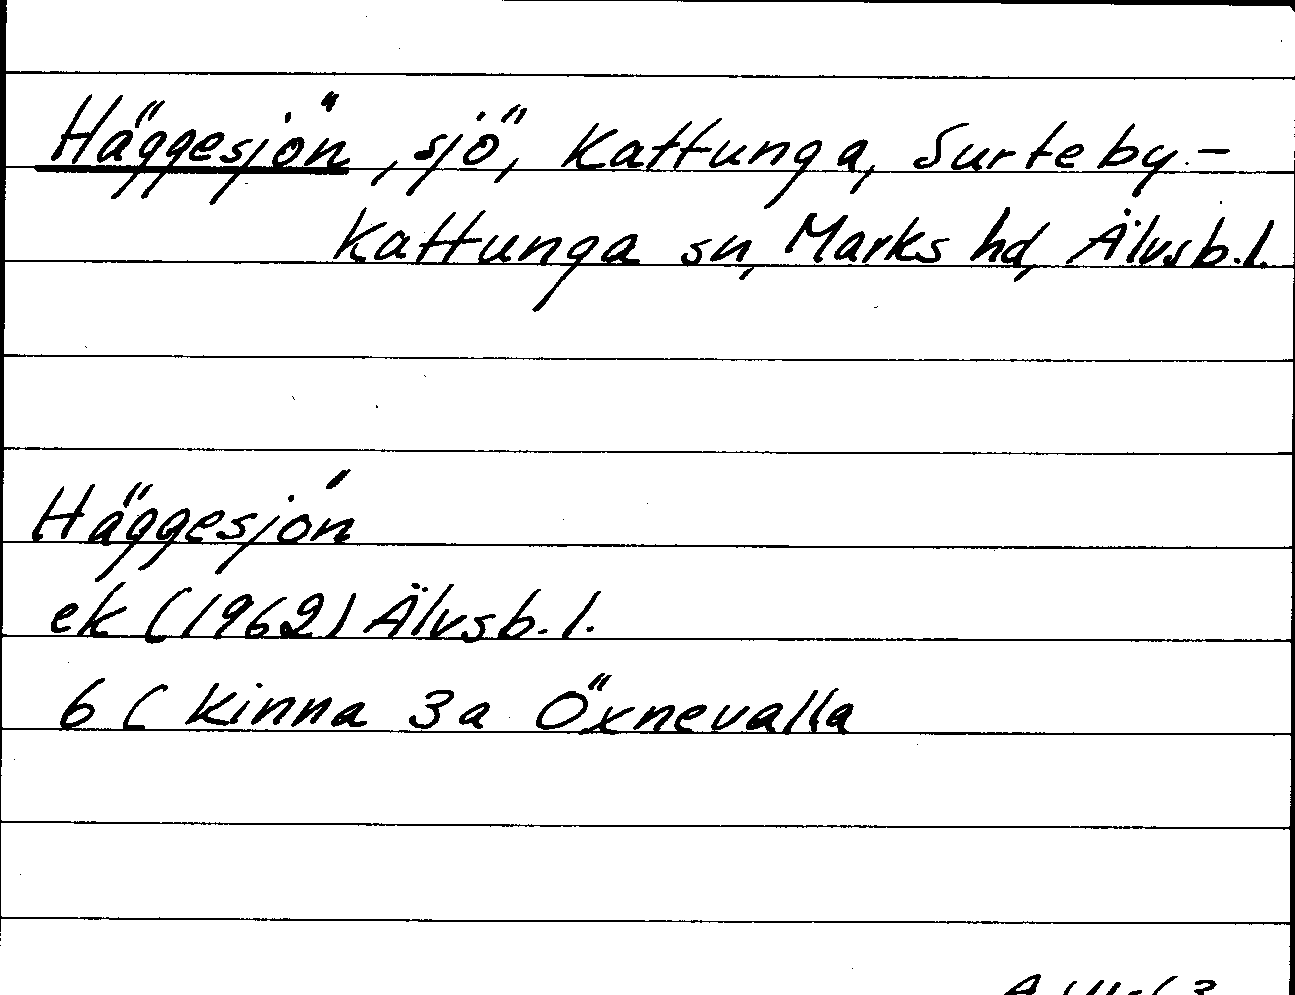 Häggesjön, sjö, Kattunga, Surteby-
Kattunga sn, Marks hd, Älvsb.l.
Häggesjön
ek (1962) Älvsb.l.
6 C Kinna 3a Öxnevalla